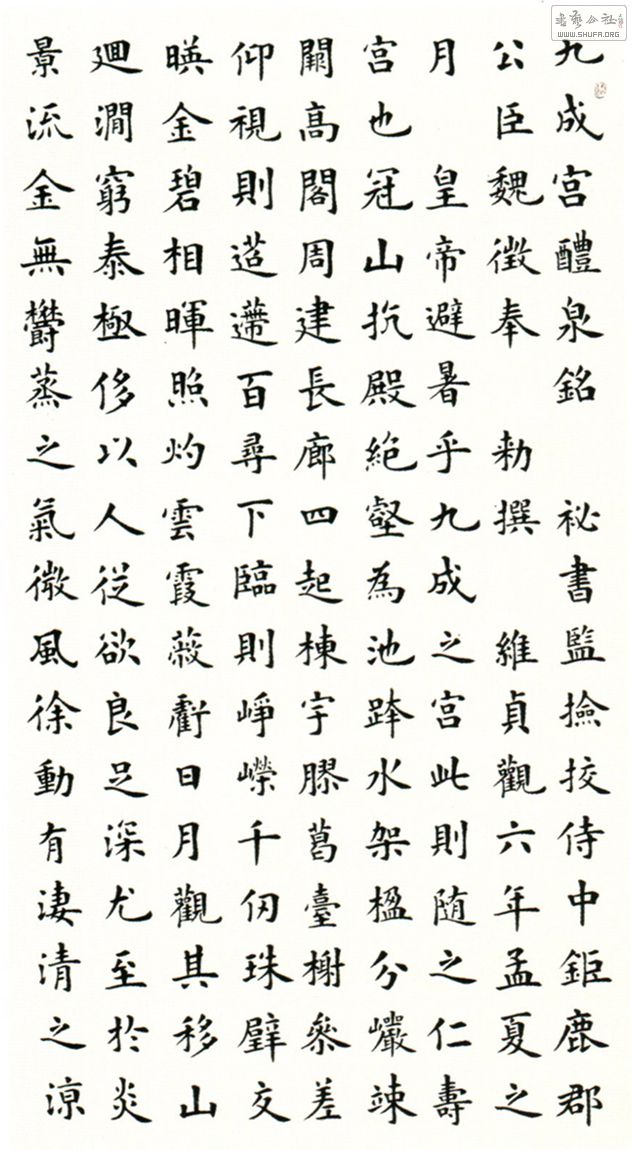 九成宮醴泉銘 祕書監撿挍侍中鉅鹿郡
公臣魏徵奉 勑撰 維貞觀六年孟夏之
月 皇帝避暑乎九成之宮此則随之仁壽
宮也冠山抗殿絶壑為池跨水架楹分巖竦
闕高閣周建長廊四起棟宇膠葛臺榭叅差
仰視則迢遰百尋下臨則崢嶸千仞珠璧交
暎金碧相暉照灼雲霞蔽虧日月觀其移山
廻澗窮泰極侈以人從欲良足深尤至於炎
景流金無欝蒸之氣微風徐動有淒清之涼
書藝公社
WWW.SHUFA.ORG